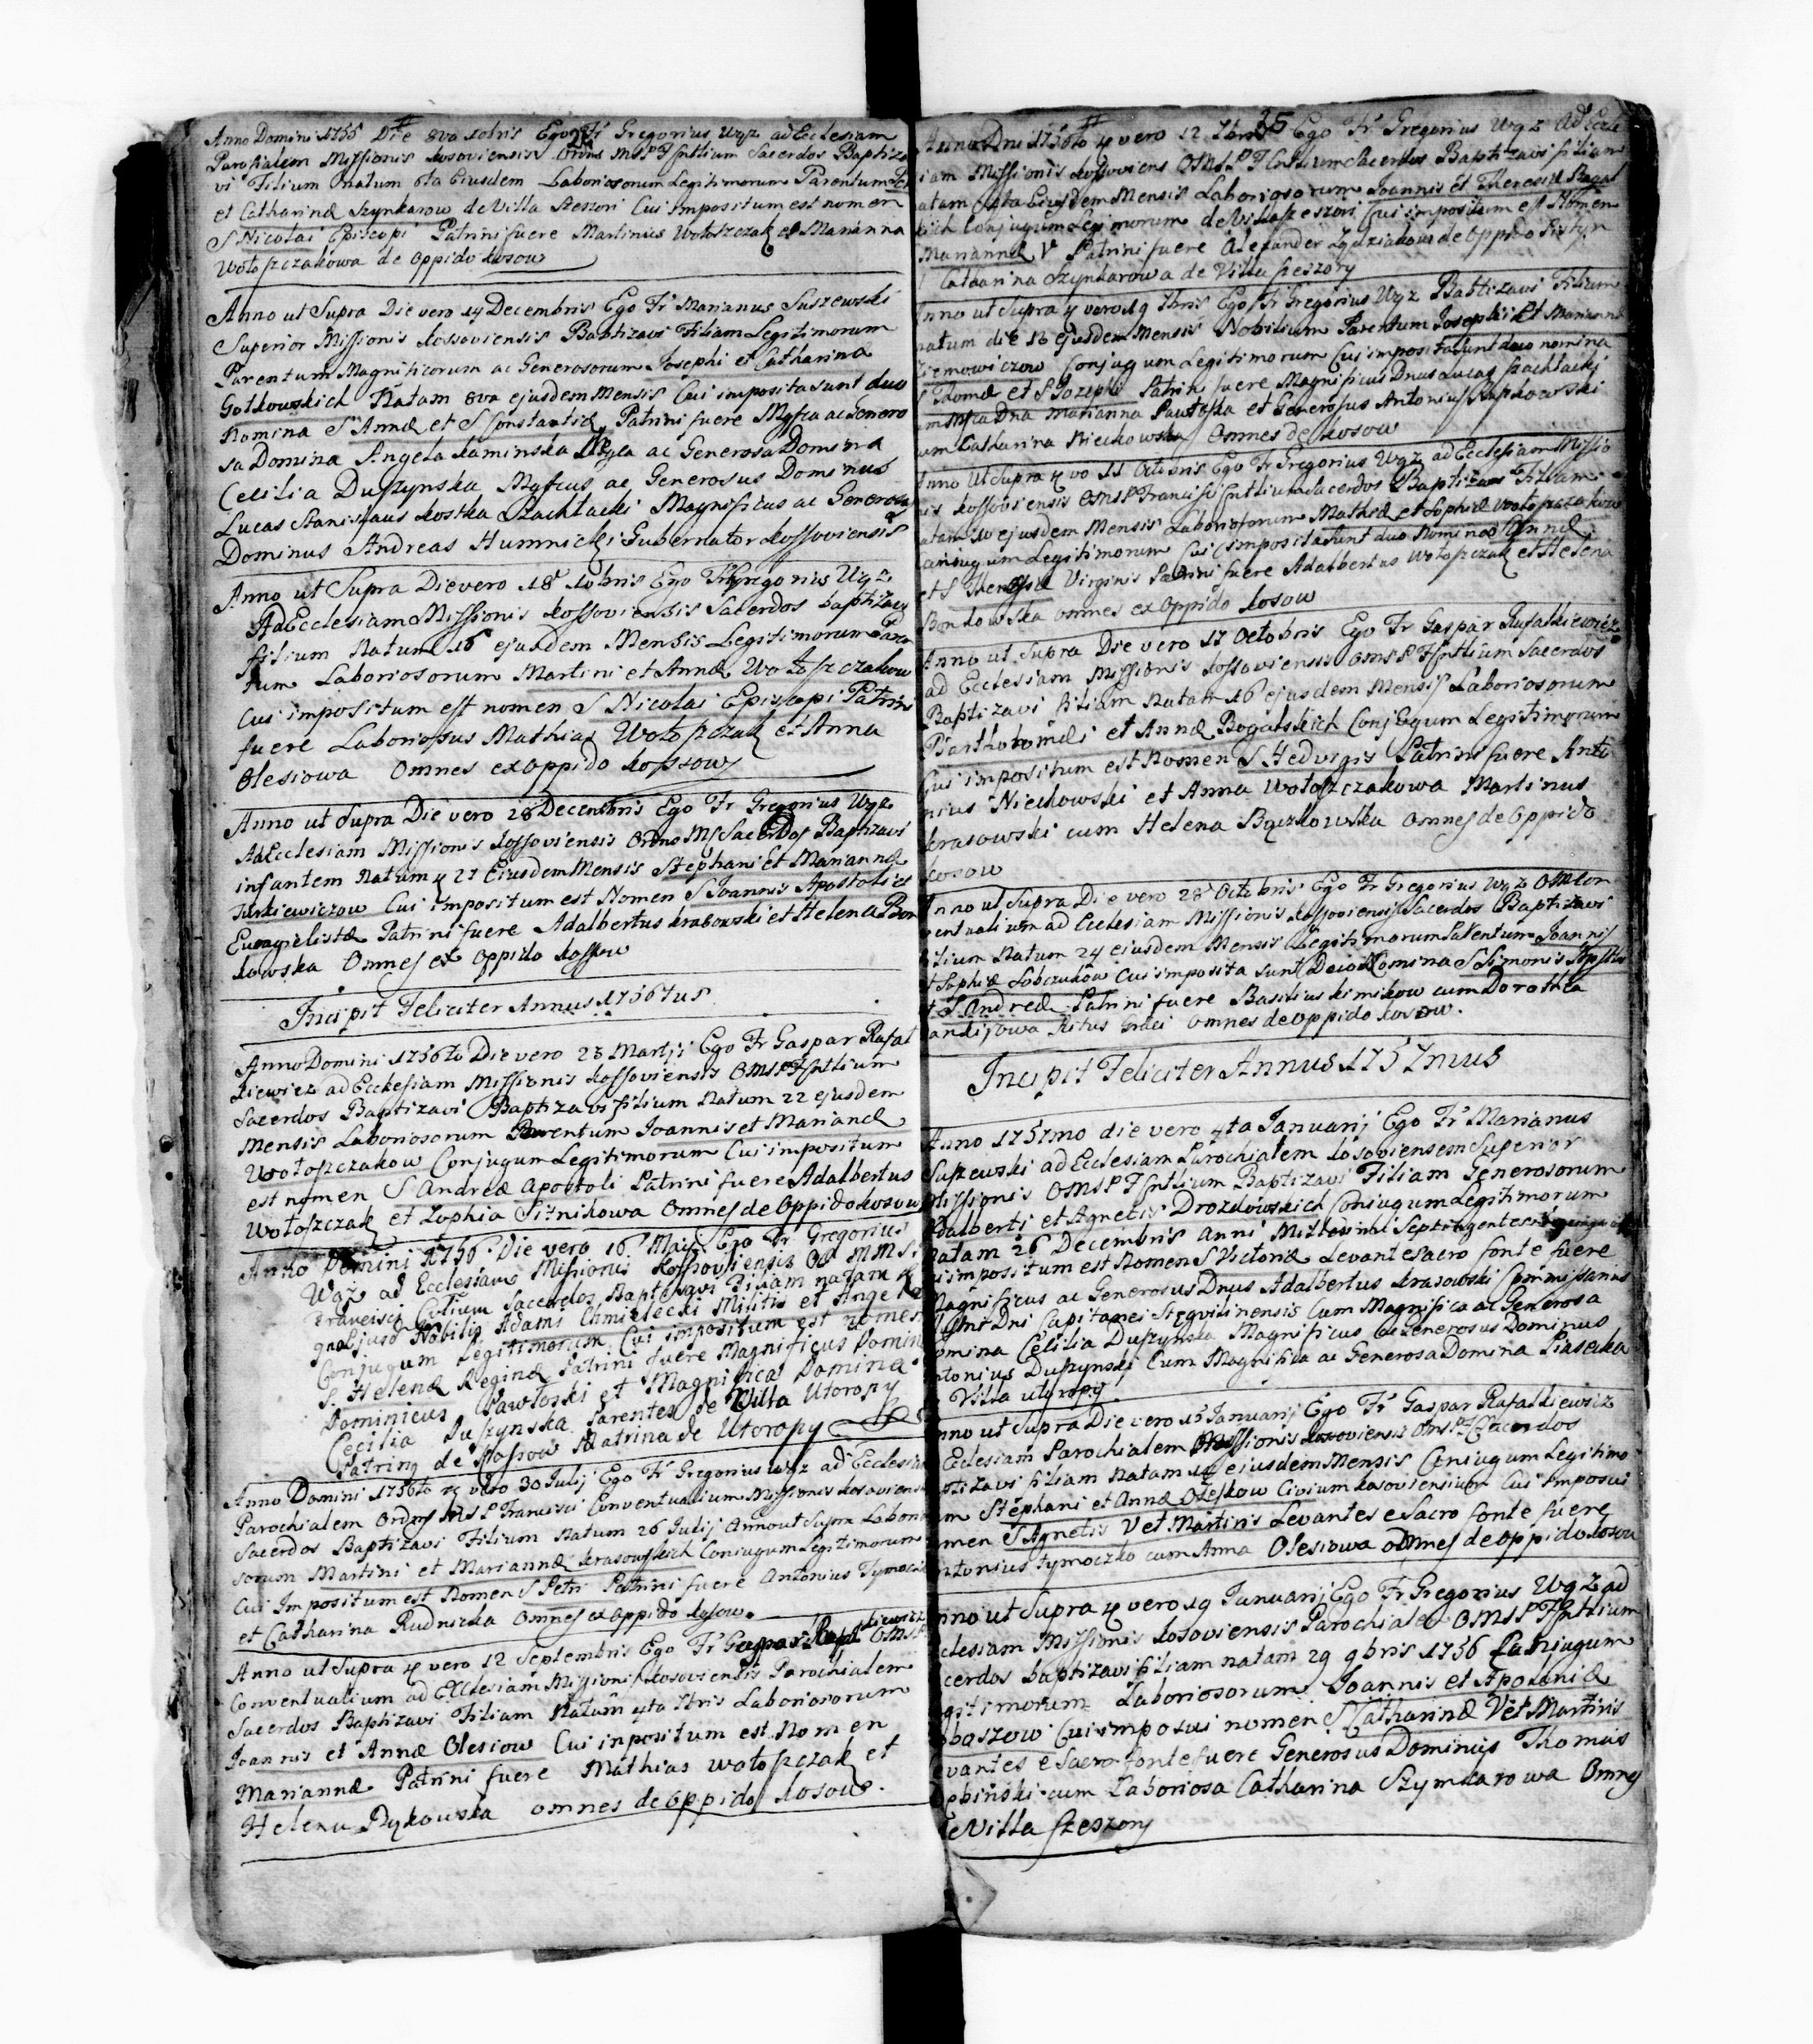 Anno Domini 1755 Die 8va Xobris Ego Fr Gregorius Wąz ad Ecclesiam
Parochialem Missionis Kosoviensis Ordins MSP Fsntlium Sacerdos Baptiza
vi Filium natum 6ta Eiusdem Laboriosorum Legitimorum Parentum
et Catharinæ Szynkarow de Villa Szeszori Cui impositum est nomen
S Nicolai Episcopi Patrini fuere Martinus Wołoszczak et Marianna
Wołoszczakowa de Oppido Kosow
Anno ut Supra Die vero 14 Decembris Ego Fr Marianus Suszewski
Superior Missionis Kossoviensis Babtizavi Filiam Legitimorum
Parentum Magnificorum ac Generosorum Josephi et Catharina
Gotkowskich Natam 8va ejusdem Mensis Cui imposita sunt duo
Nomina S Annæ et S Constantiæ Patrini fuere Mgfca ac Genero
sa Domina Angela Kaminska Mgfca ac Generosa Domina
Cecilia Duszynska Mgfcus ac Generosus Dominus
Lucas Stanislaus Kostka Szachłacki Magnificus ac Generosus
Dominus Andreas Humnicki Gubernator Kossoviensis
Anno ut Supra Die vero 18 Xobris Ego Fr Gregorius Wąz
Ad Ecclesiam Missionis Kossoviensis Sacerdos baptizavi
filium Natum 16 ejusdem Mensis Legitimorum Paren
tum Laboriosorum Martini et Annæ Wołoszczakow
Cui impositum est nomen S Nicolai Episcopi Patrini
fuere Laboriosus Mathias Wołoszczak et Anna
Olesiowa Omnes ex Oppido Kossow
Anno ut Supra Die vero 28 Decembris Ego Fr Gregorius Wąz
Ad Ecclesiam Missionis Kossoviensis Ordins MS Sacerdos Baptizavi
infantem Natum 27 Eiusdem Mensis Stephani et Mariannæ
Turkiewiczow Cui impositum est Nomen S Joannis Apostoli et
Evangelistæ Patrini fuere Adalbertus Krasowski et Helena Bon
kowska Omnes ex Oppido Kossow
Incipit Feliciter Annus 1756tus
Anno Domini 1756to Die vero 23 Martij Ego Fr Gaspar Rafal
kiewicz ad Ecclesiam Missionis Kossoviensis OMSP Fsntlium
Sacerdos Baptizavi Baptizavi filium Natum 22 ejusdem
Mensis Laboriosorum Parentum Joannis et Marianæ
Wołoszczakow Conjugum Legitimorum Cui impositum
est nomen S Andreæ Apostoli Patrini fuere Adalbertus
Wołoszczak et Zophia Sitnikowa Omnes de Oppido Kosow
Anno Domini 1756 Die vero 16 Maij Ego Fr Gregorius
Wąz ad Ecclesiam Missionis Kossoviensis Od MMS
Francisci Cntlium Sacerdos Baptizavi Filiam natam
ejusd Nobilis Adami Chmielecki Militis et Angelæ
Conjugum Legitimorum Cui impositum est nomen
S. Helenæ Reginæ Patrini fuere Magnificus Domin
Dominicus Pawłoski et Magnifica Domina
Cecilia Duszynska Parentes de Villa Utoropy
Patrinq de Kossow Matrina de Utoropy
Anno Domini 1756to vero 30 Julij Ego Fr Gregorius Wąz ad Ecclesiam
Parochialem Ordins MSP Francisci Conventualium Missionis Kosoviensis
Sacerdos Baptizavi Filium Natum 26 Julij Anno ut Supra Laborio
sorum Martini et Mariannæ Krasowskich Coniugum Legitimorum
Cui Impositum est Nomen S Petri Patrini fuere Antonius Tymoczko
et Catharina Rudnicka Omnes ex Oppido Kosow
Anno ut Supra vero 12 Septembris Ego Fr Gaspar Rafalkiewicz OMSP
Conventualium ad Ecclesiam Missionis Kosoviensis Parochialem
Sacerdos Baptizavi Filiam Natam 4ta 7bris Laboriosorum
Joannis et Annæ Olesiow Cui inpositum est Nomen
Mariannæ Patrini fuere Mathias Wołoszczak et
Helena Bykowska omnes de Oppido Kosow.
25
Anno Dni 1756to vero 12 7bris Ego Fr Gregorius Wąz Ad Eccle
iam Missionis Kossoviens OMSP Fsntlium Sacerdos Babtizavi filiam
atam Ejusdem Mensis Laboriosorum Joannis et Theresiæ
Conjugum Legimorum de Villa Szeszori Cui impositum est Nomen
Mariannæ V Patrini fuere Alexander de Oppido Pistyn
Cathaarina Szynkarowa de Villa Szeszory
nno ut Supra vero 19 7bris Ego Fr Gregorius Wąz Babtizavi Filium
natum die 16 ejusdem Mensis Nobilium Parentum Josephi et Mariannæ
Ziemowiczow Conjugum Legitimorum Cui imposita sunt duo nomina
S Thomæ et S Josephi Patrini fuere Magnificus Dnus Lucas Szachłacki
um Mfca Dna Marianna Pawłoska et Generosus Antonius Rapkowski
um Catharina Nieckowska Omnes de Kosow
nno Ut Supra vo 11 Octobris Ego Fr Gregorius Wąz ad Ecclesiam Missio
nis Kossoviensis OMSP Francisci Cntlium Sacerdos Baptizavi Filiam
atam 10 ejusdem Mensis Laboriosorum Mathiæ et Sophiæ Wołoszczakow
oniugum Legitimorum Cui imposita sunt duo Nomina Annæ
et S Theressiæ Virginis Patrini fuere Adalbertus Wołoszczak et Helena
Bonkowska omnes ex Oppido Kosow
Anno ut Supra Die vero 17 Octobris Ego Fr Gaspar Rafalkiewicz
ad Ecclesiam Missionis Kossoviensis OMSP Fsntlium Sacerdos
Baptizavi filiam Natam 16 ejusdem Mensis Laboriosorum
Bartholomæi et Annæ Bogatskich Conjugum Legitimorum
Cui impositum est Nomen S Hedvigis Patrini fuere Anto
nius Nieckowski et Anna Wołoszczakowa Martinus
Krasowski cum Helena Bączkowska Omnes de Oppido
Kosow
nno ut Supra Die vero 28 Octobris Ego Fr Gregorius Wąz OM Con
ventualium ad Ecclesiam Missionis Kossoviensis Sacerdos Baptizavi
ilium Natum 24 ejusdem Mensis Legitimorum Parentum Joannis
t Sophiæ Lobczukow Cui imposita sunt Duo Nomina S Simonis Apstli
t S Andreæ Patrini fuere Basilius Kimikow cum Dorothea
Ritus Græci Omnes de Oppido Kosow.
Incipit Feliciter Annus 1757mus
Anno 1757mo die vero 4ta Januarij Ego Fr Marianus
Suszewski ad Ecclesiam Parochialem Kosoviensem Superior
Missionis OMSP Fsntlium Baptizavi Filiam Generosorum
Adalberti et Agnetis Drozdowskich Coniugum Legitimorum
Natam 26 Decembris Anni Millesimi Septingentesi
ui impositum est Nomen S Victoriæ Levantes sacro fonte fuere
Magnificus ac Generosus Dnus Adalbertus Krasowski Commissarius
Dni Capitanei Steqvilinensis Cum Magnifica ac Generosa
Domina Cecilia Duszynska Magnificus ac Generosus Dominus
ntonius Duszynski Cum Magnifica ac Generosa Domina Piasecka
Villa utoropy
nno ut Supra Die vero 15 Januarij Ego Fr Gaspar Rafalkiewicz
Eclesiam Parochialem Missionis Kosoviensis OMSP FC Sacerdos
ptizavi filiam Natam 14 ejusdem Mensis Coniugum Legitimo
m Stephani et Annæ Oleskow Civium Kosoviensium Cui Imposui
men S Agnetis V et Martiris Levantes e Sacro fonte fuere
ntonius tymoczko cum Anna Olesiowa omnes de oppido Kosow
nno ut Supra vero 19 Januarij Ego Fr Gregorius Wąz ad
clesiam Missionis Kosoviensis Parochiale OMSP Fsntlium
cerdos baptizavi filiam natam 29 9bris 1756 Coniugum
gitimorum Laboriosorum Joannis et Apoloniæ
baszow Cui imposui nomen S Catharinæ V et Martiris
vantes e Sacro fonte fuere Generosus Dominus Thomas
binski cum Laboriosa Catharina Szymkarowa Omnes
e Villa Szeszory